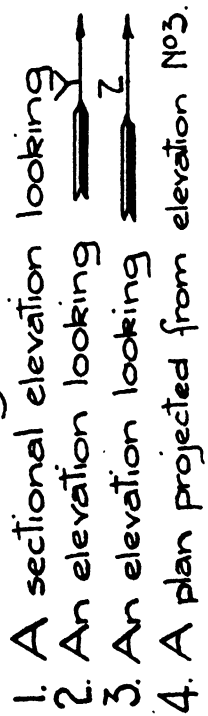 1. A sectional elevation looking
2. An elevation looking Y
3. An elevation looking Z
4. A plan projected from elevation Nº3.